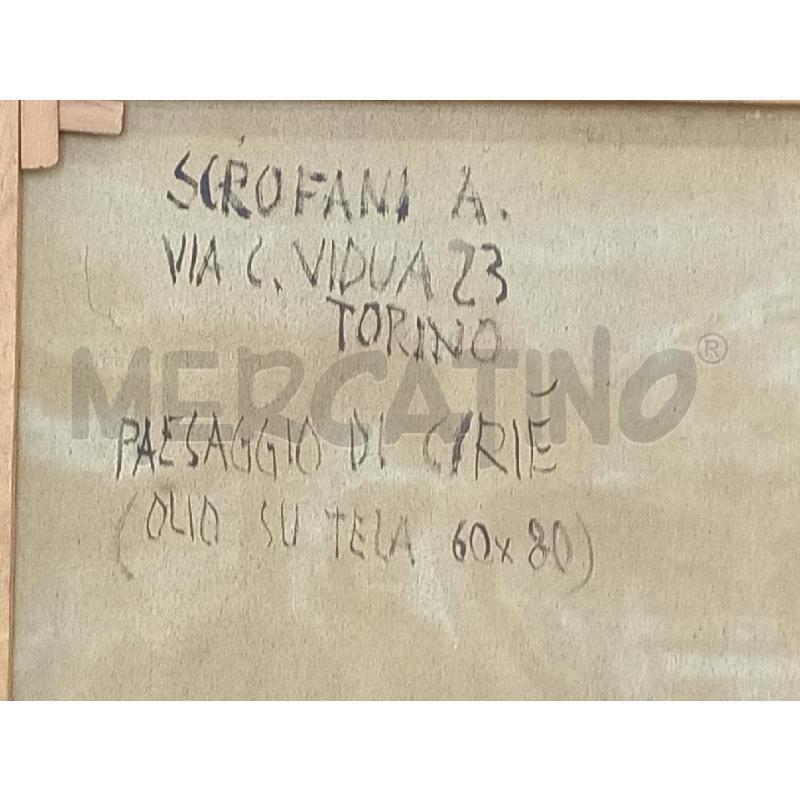 SCROFANI A.
VIA C. VIDUA 23
TORINO
MERCATINO®
PAESAGGIO DI CIRIÉ
(OLIO SU TELA 60x80)